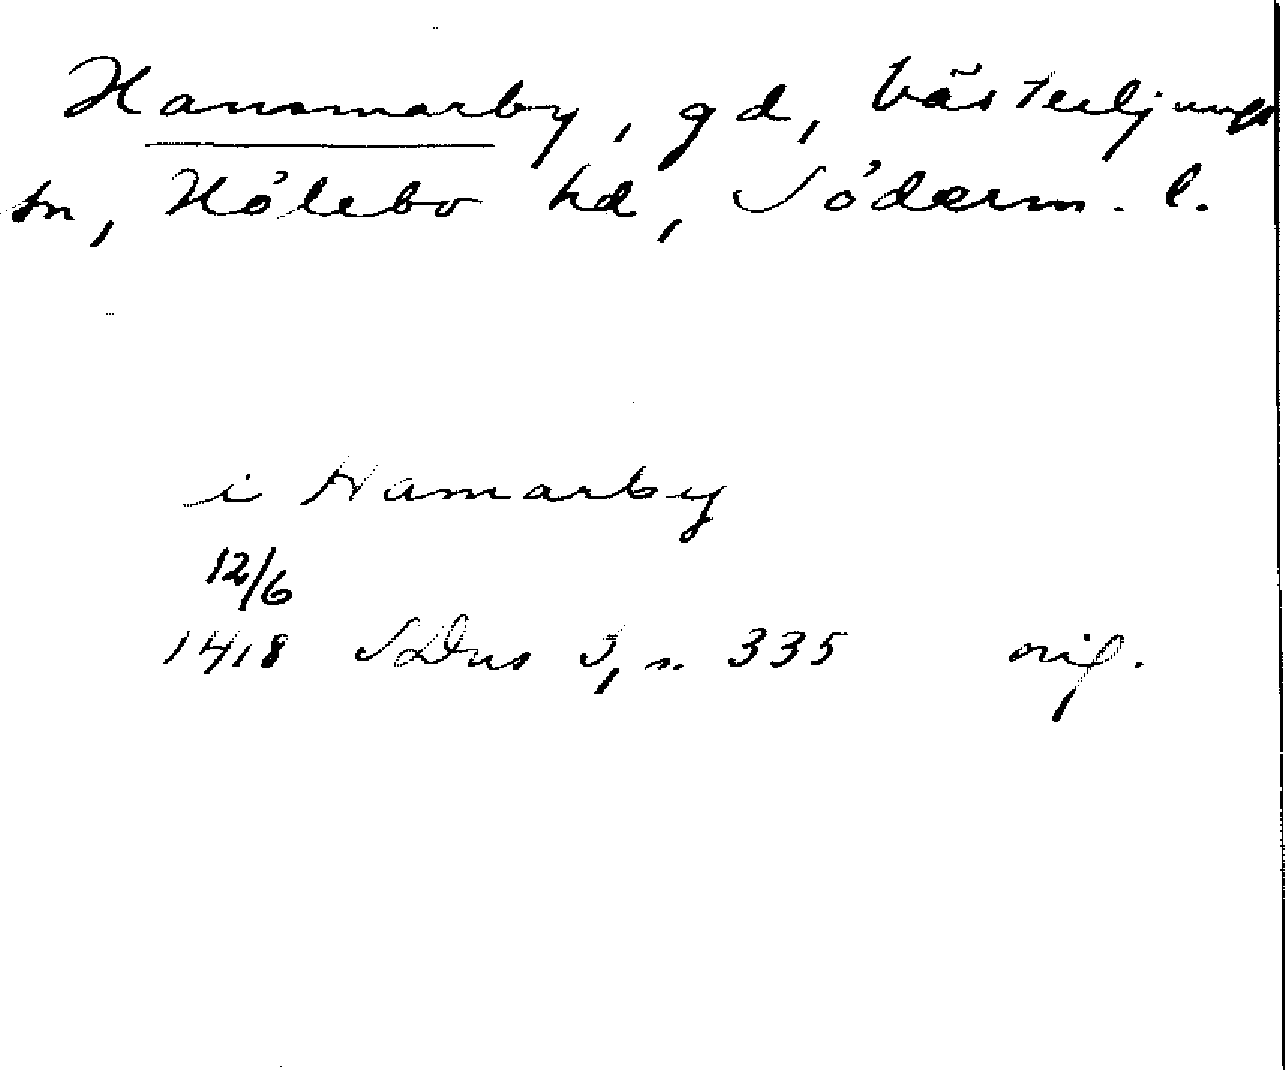 Hammarby, gd, Västerljungs
sn, Hölebo hd, Söderm. l.
i Hamarby
12/6
1418 SDns 3, s. 335 orig.